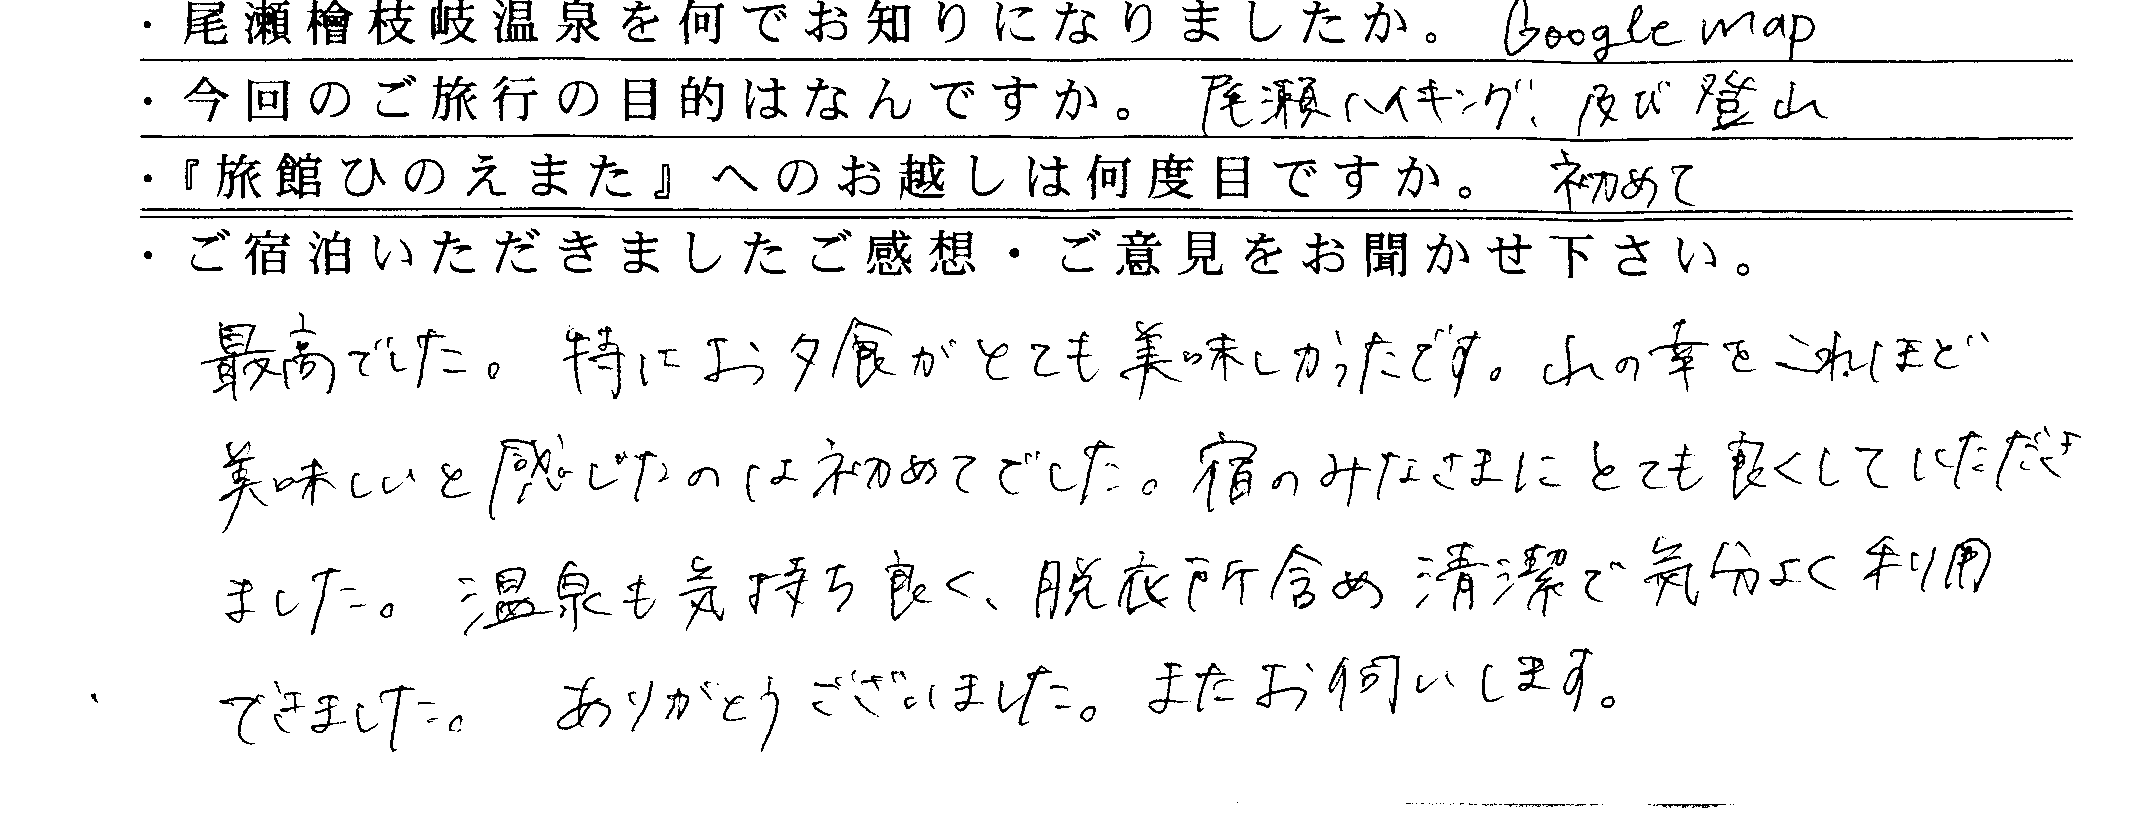 ・尾瀬檜枝岐温泉を何でお知りになりましたか。 Google map
・今回のご旅行の目的はなんですか。 尾瀬ハイキング、及び登山
・『旅館ひのえまた』へのお越しは何度目ですか。 初めて
・ご宿泊いただきましたご感想・ご意見をお聞かせ下さい。
最高でした。特にお夕食がとても美味しかったです。山の幸をこれほど
美味しいと感じたのは初めてでした。宿のみなさまにとても良くしていただき
ました。温泉も気持ち良く、脱衣所含め清潔で気分よく利用
できました。ありがとうございました。またお伺いします。